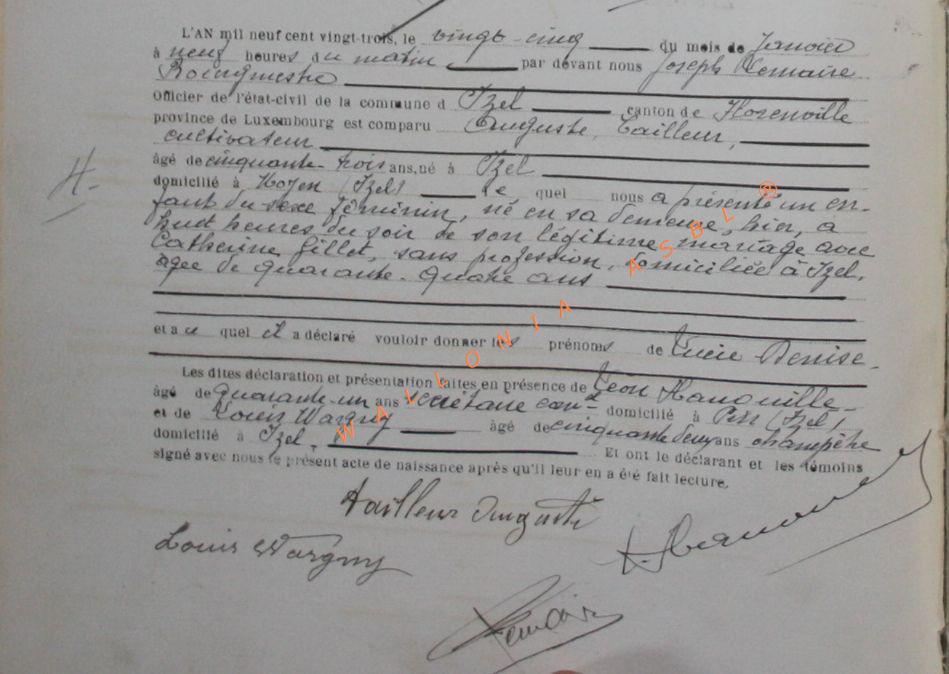 L'AN mil neuf cent vingt-trois, le vingt-cinq du mois de Janvier
à neuf heures du matin par devant nous Joseph Lemaire
Bourgmestre
Officier de l'état-civil de la commune d Izel canton de Florenville
province de Luxembourg est comparu Auguste, Tailleur,
cultivateur
âgé de cinquante-trois ans, né à Izel
4.
domicilié à Moyen (Izel) le quel nous a présenté un en-
fant du sexe féminin, né en sa demeure, hier, à
huit heures du soir de son légitime mariage avec
Catherine Gillet, sans profession, domiciliée à Izel,
âgée de quarante-quatre ans
et a u quel il a déclaré vouloir donner les prénoms de Lucie Denise.
Les dites déclaration et présentation faites en présence de Léon
âgé de quarante-un ans secrétaire comal domicilié à Pin (Izel)
et de Louis Wargny âgé de cinquante deux ans champêtre
domicilié à Izel. Et ont le déclarant et les témoins
signé avec nous le présent acte de naissance après qu'il leur en a été fait lecture.
Tailleur Auguste
Louis Wargny
Lemaire
WALLONIA ASBL ®